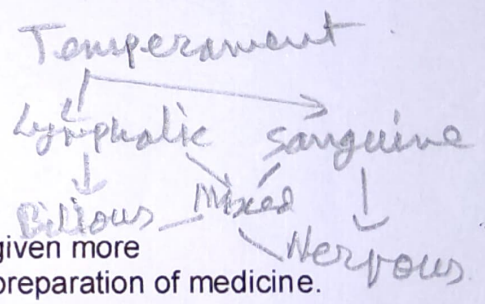 Temperament
Lymphatic sanguine
Billous Mixed
Nervous
given more
preparation of medicine.